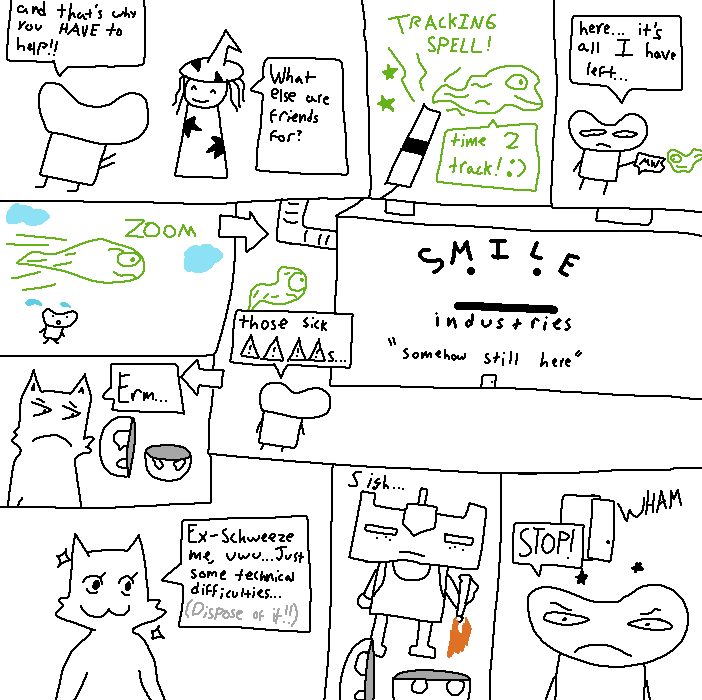 and that's why
you HAVE to
help!!
What
else are
friends
for?
TRACKING
SPELL!
time 2
track! :)
here... it's
all I have
left...
ZOOM
those sick
⚠⚠⚠⚠s...
SMILE
industries
"somehow still here"
Erm...
Ex-Schweeze
me, uwu...Just
some technical
difficulties...
(Dispose of it!!)
Sigh...
WHAM
STOP!